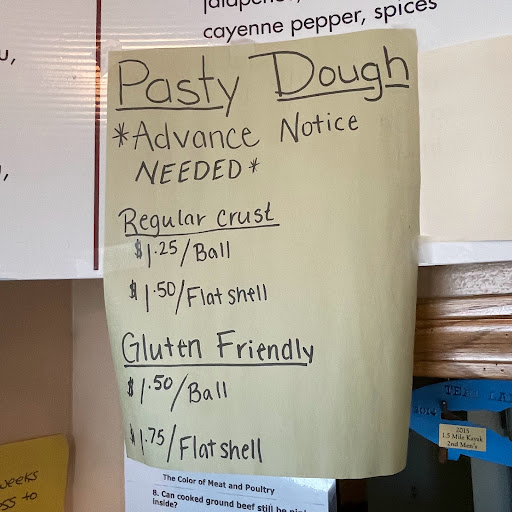 cayenne pepper, spices
Pasty Dough
*Advance Notice
NEEDED*
Regular Crust
$1.25/Ball
$1.50/Flat shell
Gluten Friendly
$1.50/Ball
$1.75/Flat shell
2014
2015
1.5 Mile Kayak
2nd Men's
weeks
to
The Color of Meat and Poultry
8. Can cooked ground beef still be
inside?